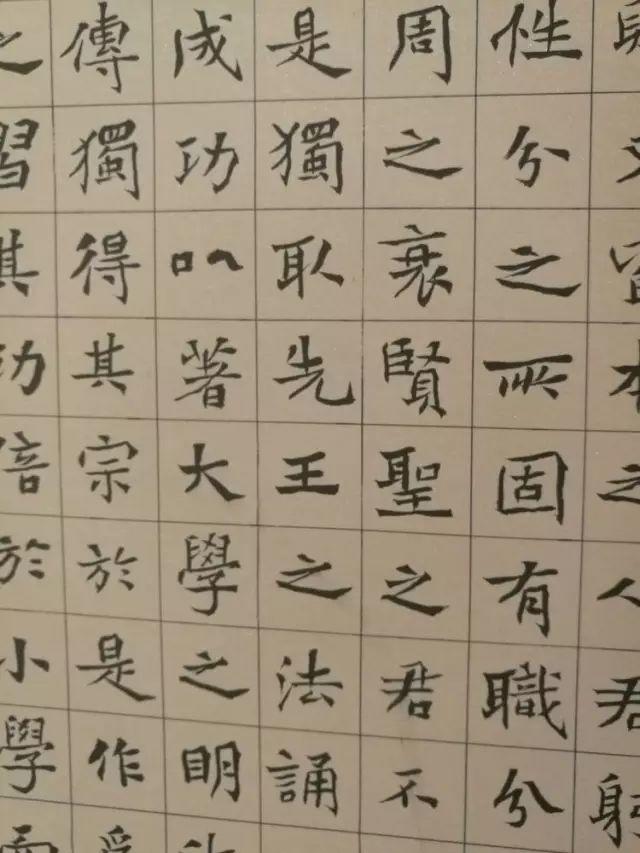 又皆本之人君躬
性分之所固有職分
周之衰賢聖之君不
是獨取先王之法誦
成功以著大學之明
傳獨得其宗於是作
之習其功倍於小學